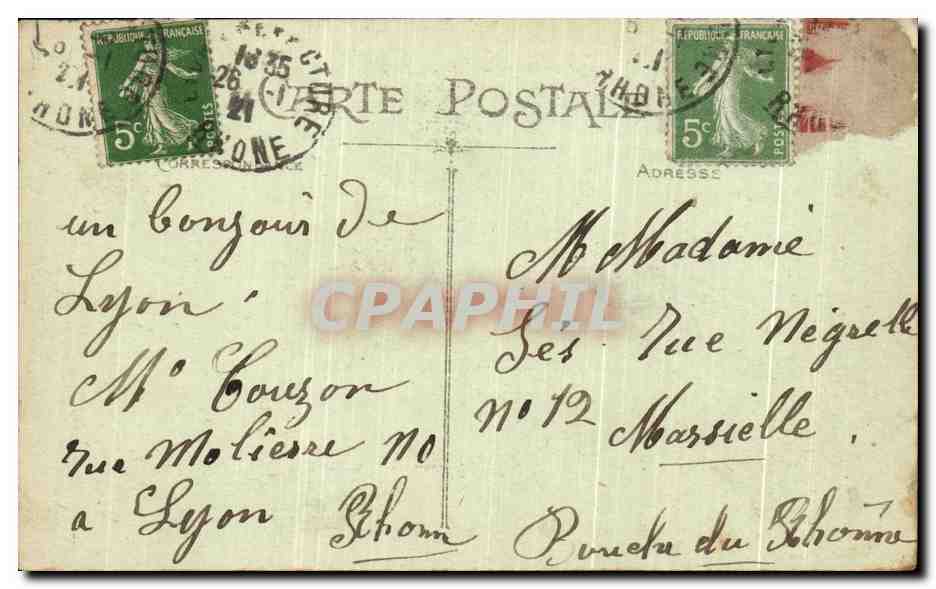 RHONE
REPUBLIQUE FRANÇAISE
5c
POSTES
18 35
26 -1
21
RHONE
CARTE POSTALE
RHONE
REPUBLIQUE FRANÇAISE
5c
POSTES
CORRESPONDANCE
ADRESSE
un bonjour de
Lyon.
Mr Couzon
rue Molierre No
a Lyon
Rhonn
M Madame
Sés rue Négrelle
No 12
Marsielle.
Bouche du Rhônne
CPAPHIL